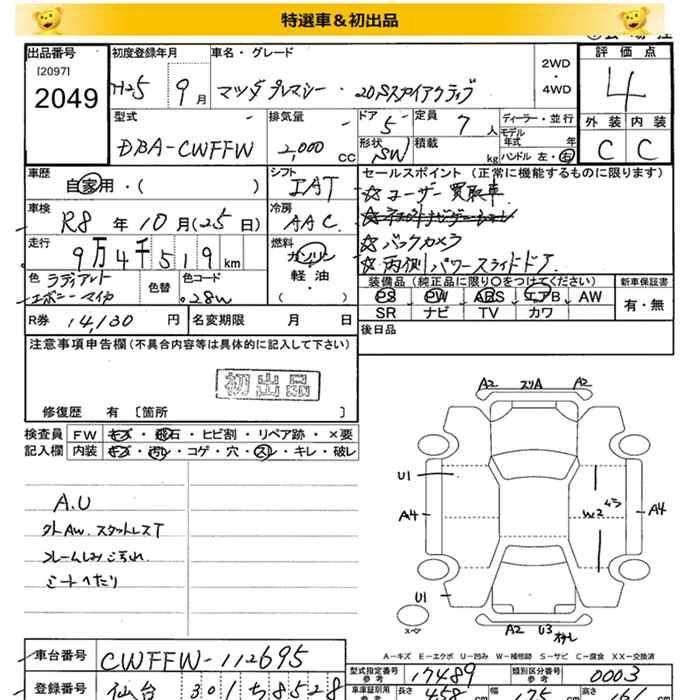 特選車＆初出品
出品番号 初度登録年月 車名・グレード 2WD・4WD 評価点
[2097]
2049 H25 9月 マツダ プレマシー・20Sスカイアクティブ 4
型式 排気量 ドア 5 定員 7人 ディーラー・並行 外装 内装
モデル年式 年
DBA-CWFFW 2,000 CC 形状 SW 積載 kg ハンドル 左・右 C C
車歴 自家用・( ) シフト IAT セールスポイント (正常に機能するものに限ります)
☆ユーザー買取車
車検 R8年10月(25日) 冷房 AAC
☆バックカメラ
走行 9万4千519km 燃料 ガソリン・軽油( )
☆両側パワースライドドア
色 ラディアントエボニーマイカ 色替 色コード 28W
装備品 (純正品に限り○をつけてください) 新車保証書
PS PW ABS エアB AW 有・無
SR ナビ TV カワ
R券 14,130円 名変期限 月 日
後日品
注意事項申告欄(不具合内容等は具体的に記入して下さい)
初出品
修復歴 有 〔箇所 〕
検査員記入欄 FW キズ・飛石・ヒビ割・リペア跡・×要
内装 キズ・汚レ・コゲ・穴・スレ・キレ・破レ
A2 スリA A2
U1
A4 W2 ムラ A4
A.U
外AW.スタットレスT
フレームしみこ汚れ
シートへたり
U1
スペア A2 U3
A-キズ E-エクボ U-凹ミ W-補修跡 S-サビ C-腐食 XX-交換済
車台番号 CWFFW-112695
型式指定番号参考 17489 類別区分番号参考 0003
登録番号 仙台 301 ち 8528
車庫証明用参考 長さ 458 cm 幅 175 cm 高さ